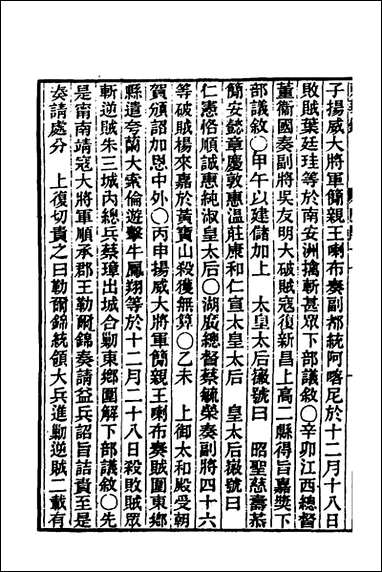 子揚威大將軍簡親王喇布奏副都統阿喀尼於十二月十八日
敗賊葉廷珪等於南安洲擒斬甚眾下部議敘〇辛卯江西總督
董衞國奏副將吳友明大破賊寇復新昌上高二縣得旨嘉獎下
部議敘〇甲午以建儲加上　太皇太后徽號曰　昭聖慈壽恭
簡安懿章慶敦惠溫莊康和仁宣太皇太后　皇太后徽號曰
仁憲恪順誠惠純淑皇太后〇湖廣總督蔡毓榮奏副將四十六
等破賊楊來嘉於黃寶山殺獲無算〇乙未　上御太和殿受朝
賀頒詔加恩中外〇丙申揚威大將軍簡親王喇布奏賊圍東鄉
縣遣夸蘭大索倫遊擊牛鳳翔等於十二月二十八日殺敗賊眾
斬逆賊朱三城內總兵蔡璋出城合勦東鄉圍解下部議敘〇先
是甯南靖寇大將軍順承郡王勒爾錦奏請益兵詔旨詰責至是
奏請處分　上復切責之曰勒爾錦統領大兵進勦逆賊二載有